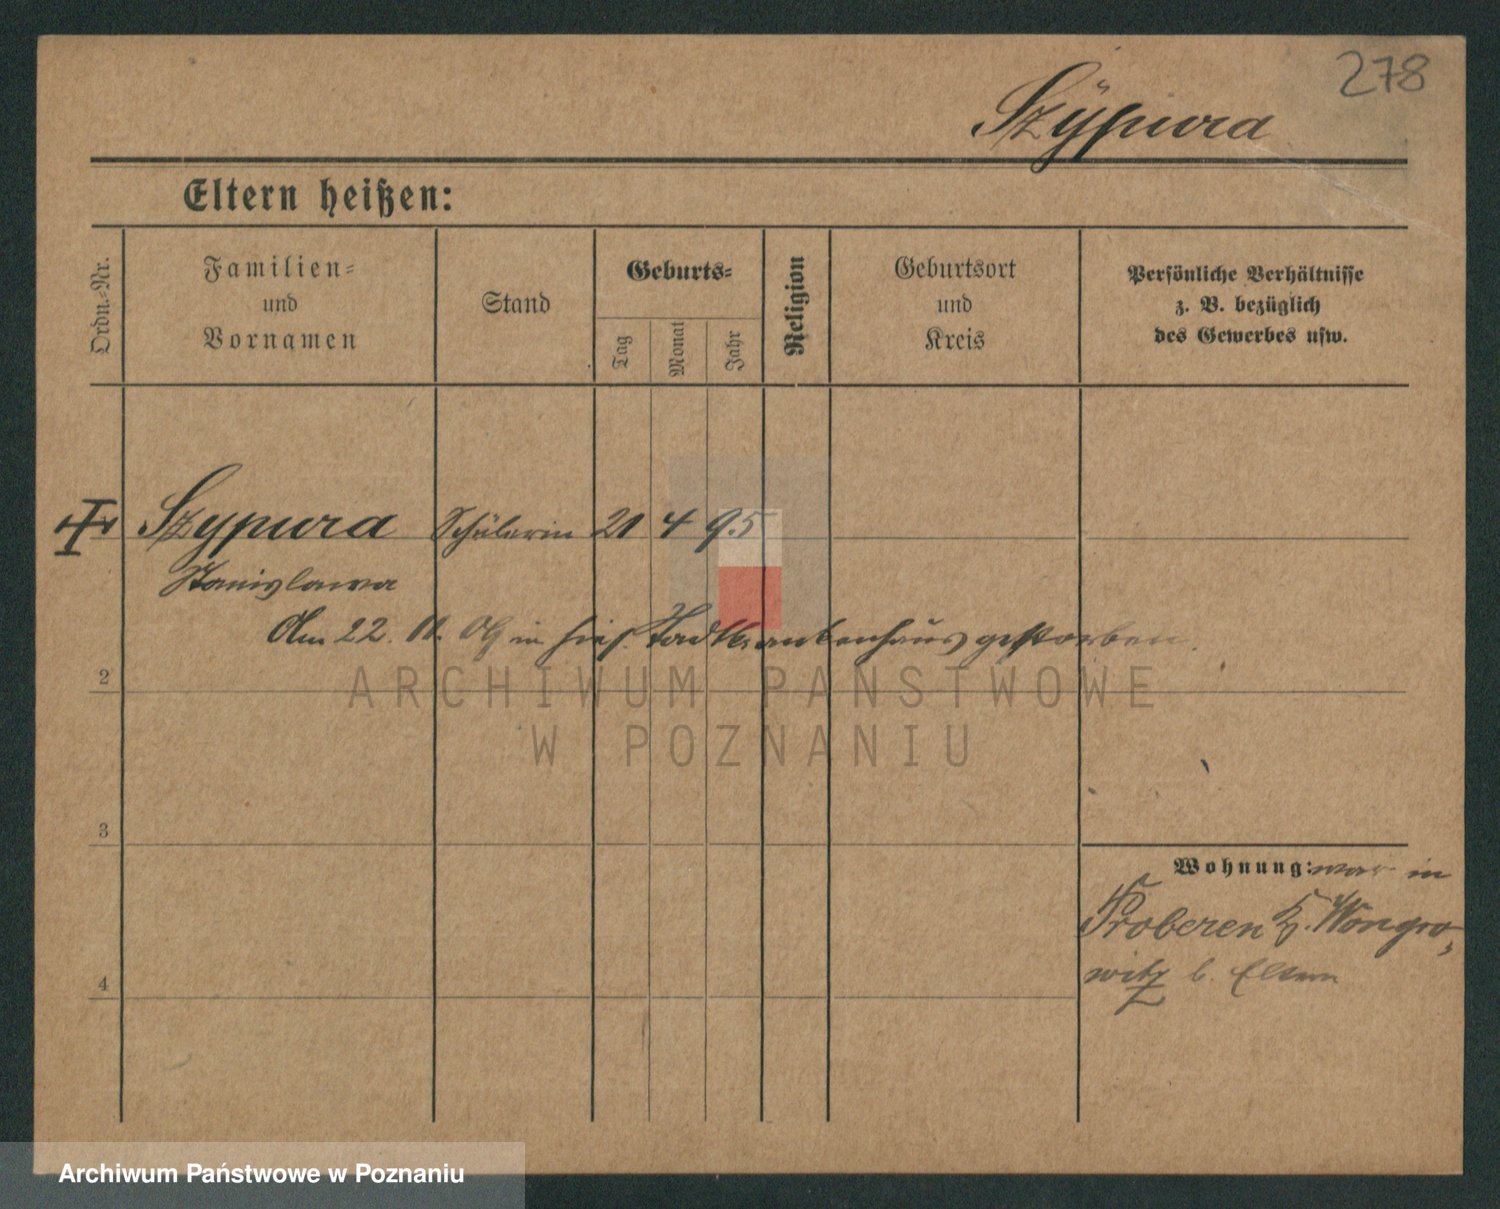 278
Szÿpura
Eltern heißen:
Ordn.-Nr.
Familien-
und
Vornamen
Stand
Geburts-
Tag
Monat
Jahr
Religion
Geburtsort
und
Kreis
Persönliche Verhältnisse
z. B. bezüglich
des Gewerbes usw.
Szypura Schülerin 21 4 95
Stanislawa
Am 22. 11. in hies. Stadtkrankenhaus gestorben.
2
ARCHIWUM PAŃSTWOWE
W POZNANIU
3
Wohnung: war in
Proberen K. Wongro-
witz b. Eltern
4
Archiwum Państwowe w Poznaniu